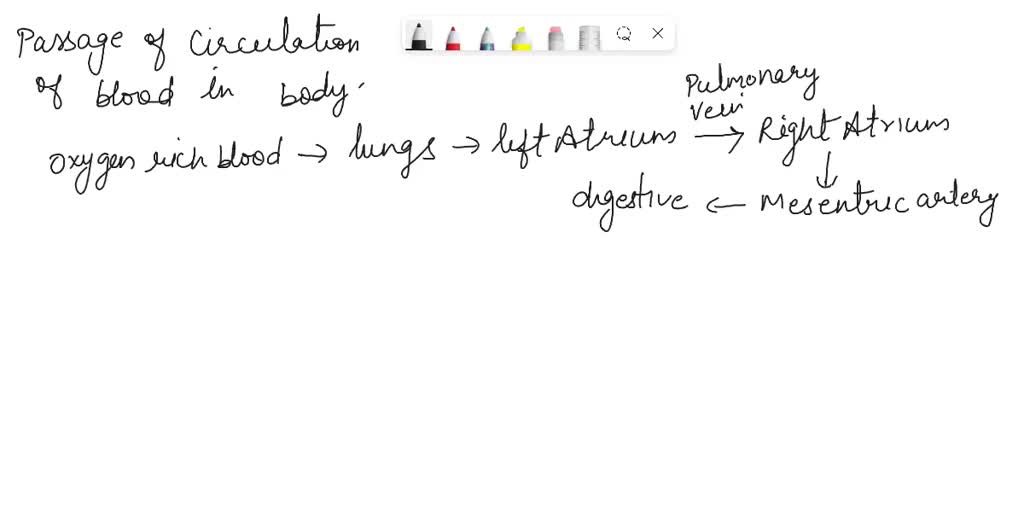 Passage of Circulation
of blood in body.
Pulmonary
Vein
oxygen rich blood → lungs → left Atrium → Right Atrium
↓
digestive ← Mesentric artery